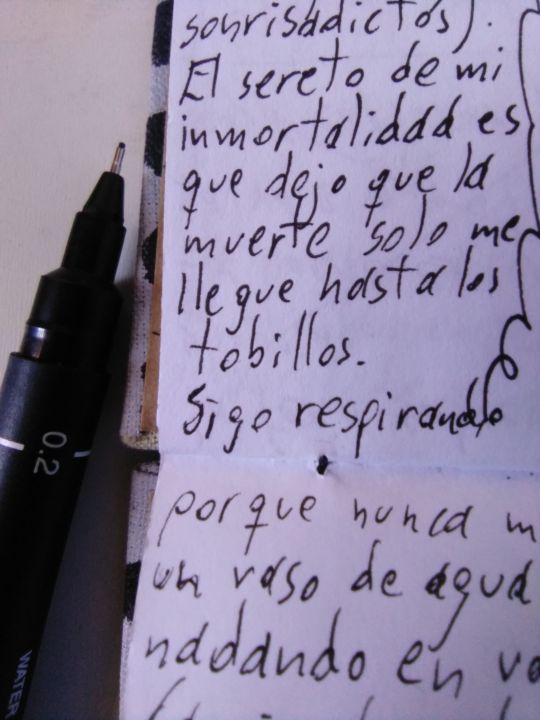 sonrisadictos).
El sereto de mi
inmortalidad es
que dejo que la
muerte solo me
llegue hasta los
tobillos.
Sigo respirando
porque nunca m
un vaso de agua
nadando en va
0.2
WATER